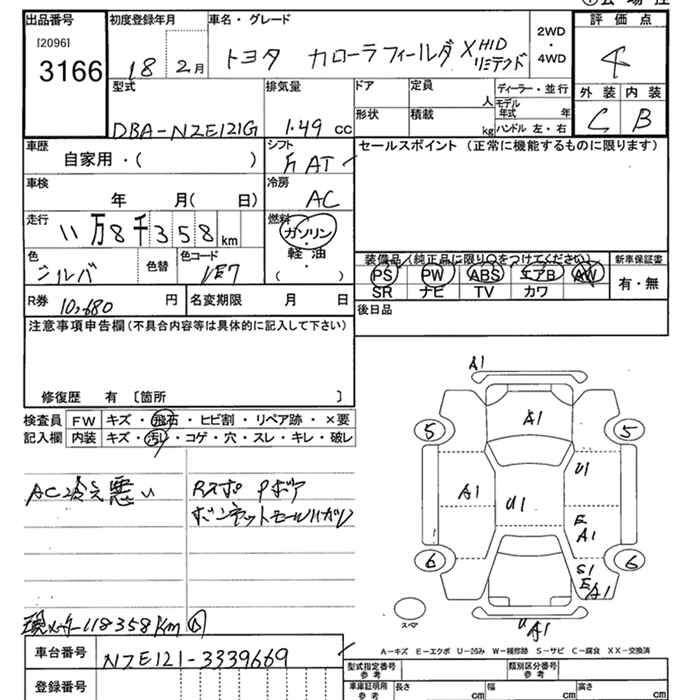 出品番号
[2096]
3166
初度登録年月
18 2月
車名・グレード
トヨタ カローラフィールダ X HID リミテッド
2WD
・
4WD
評価点
4
外装 内装
C B
型式
DBA-NZE121G
排気量
1.49 cc
ドア
形状
定員
人
積載
kg
ディーラー・並行
モデル年式 年
ハンドル 左・右
車歴
自家用・( )
シフト
F AT
セールスポイント (正常に機能するものに限ります)
車検
年 月( 日)
冷房
AC
走行
11万8千358 km
燃料
ガソリン
軽油
・
( )
色
シルバ
色替
色コード
1E7
装備品 (純正品に限り○をつけてください)
PS PW ABS エアB AW
SR ナビ TV カワ
新車保証書
有・無
R券 10,680 円
名変期限 月 日
後日品
注意事項申告欄 (不具合内容等は具体的に記入して下さい)
修復歴 有 [箇所 ]
検査員
記入欄
FW キズ・飛石・ヒビ割・リペア跡・×要
内装 キズ・汚れ・コゲ・穴・スレ・キレ・破レ
AC冷え悪い
Rスポ Pボア
ボンネットモールハガレ
A1
A1
5 5
A1 U1 U1
E
A1
6 6
S1
E A1
スペア
U A1
現メーター118358Km
A-キズ E-エクボ U-凹み W-補修跡 S-サビ C-腐食 XX-交換済
車台番号 NZE121-3339669
登録番号
型式指定番号
参考
類別区分番号
参考
車庫証明用
参考
長さ cm 幅 cm 高さ cm